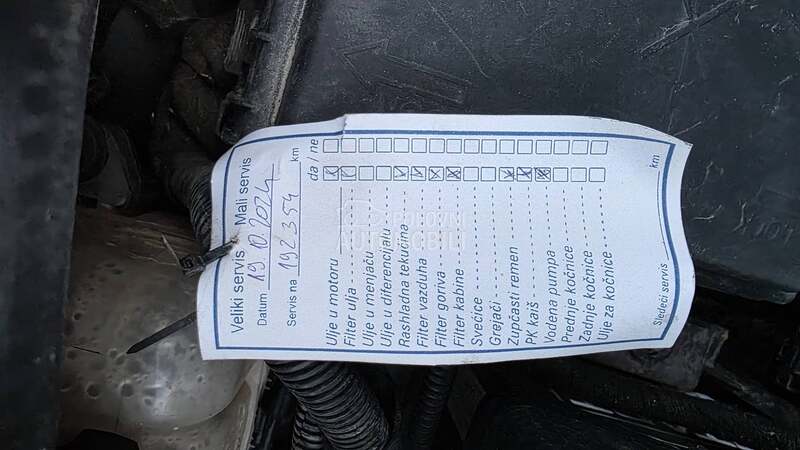 Veliki servis Mali servis
Datum 19.10.2024
Servis na 192354 km
da / ne
Ulje u motoru
Filter ulja
Ulje u menjaču
Ulje u diferencijalu
Rashladna tekućina
Filter vazduha
Filter goriva
Filter kabine
Svećice
Grejači
Zupčasti remen
PK kaiš
Vodena pumpa
Prednje kočnice
Zadnje kočnice
Ulje za kočnice
Sledeći servis km
POLOVNI
AUTOMOBILI